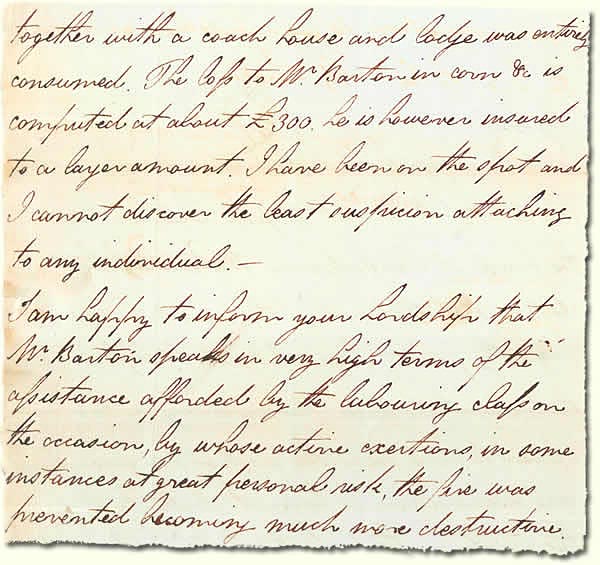 together with a coach house and lodge was entirely
consumed. The loss to Mr. Barton in corn &c is
computed at about £300. he is however insured
to a larger amount. I have been on the spot and
I cannot discover the least suspicion attaching
to any individual. —
I am happy to inform your Lordship that
Mr. Barton speaks in very high terms of the
assistance afforded by the labouring class on
the occasion, by whose active exertions, in some
instances at great personal risk, the fire was
prevented becoming much more destructive.